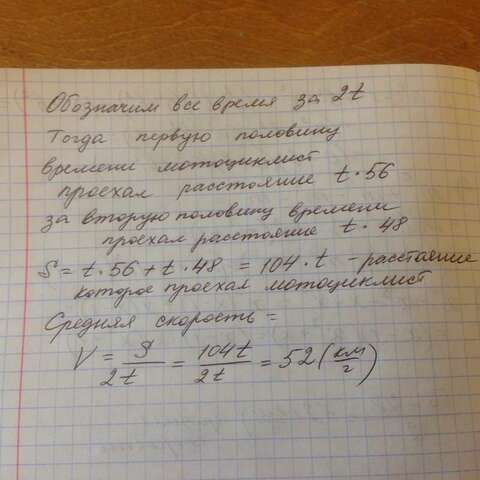 Обозначим все время за 2t
Тогда первую половину
времени мотоциклист
проехал расстояние t · 56
за вторую половину времени
проехал расстояние t · 48
S = t · 56 + t · 48 = 104 · t - расстаяние
которое проехал мотоциклист
Средняя скорость =
V = S/2t = 104t/2t = 52 (км/г)